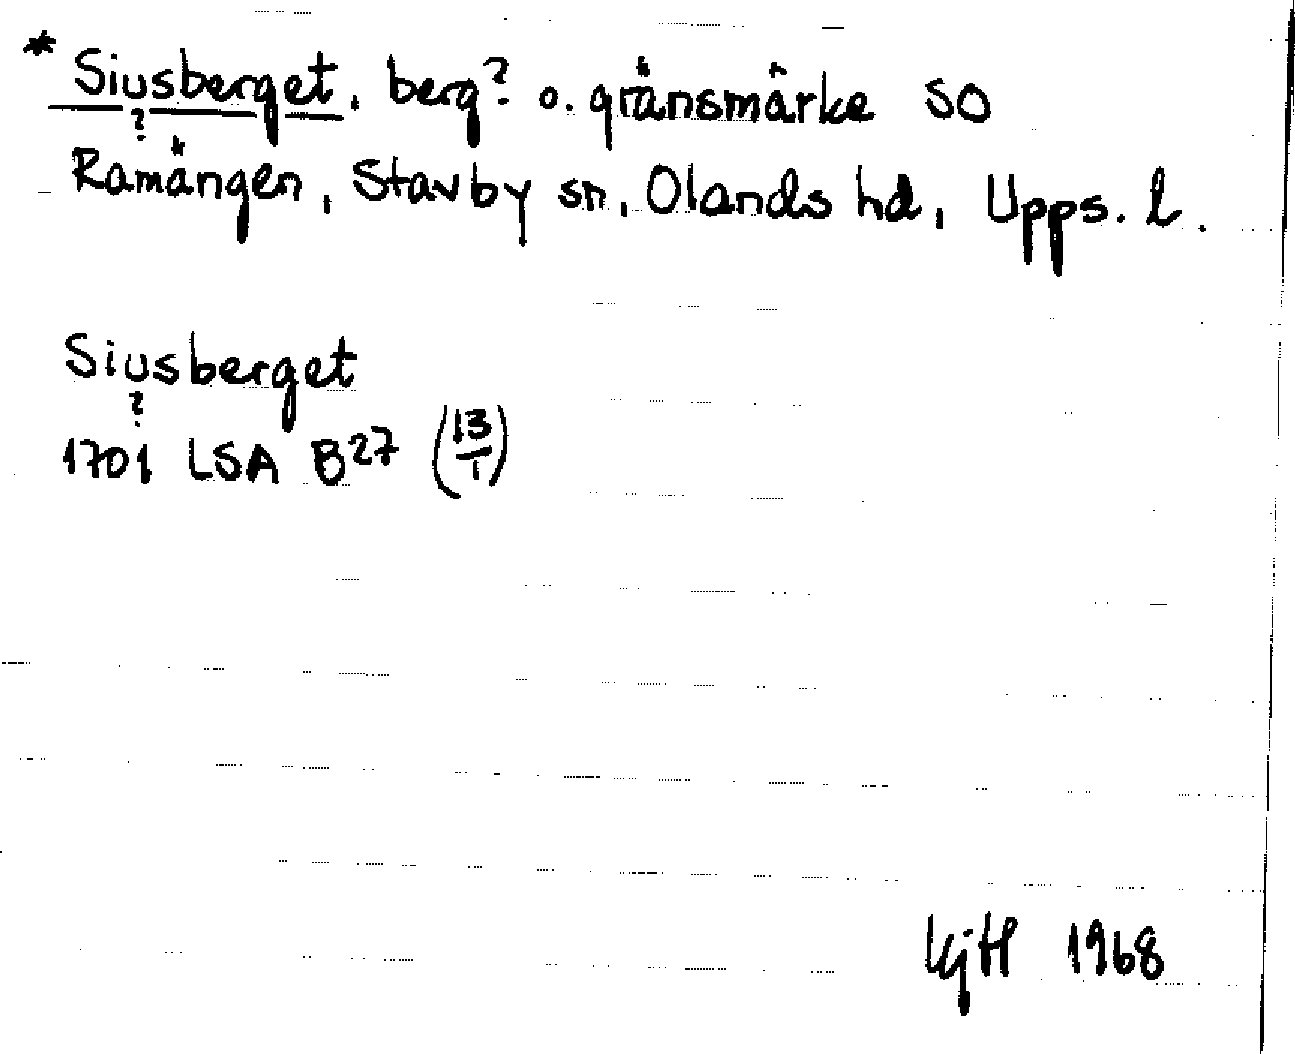 * Siusberget, berg? o. gränsmärke SO
?
Ramängen, Stavby sn, Olands hd, Upps. l.
Siusberget
?
1701 LSA B27 (13/1)
KjH 1968